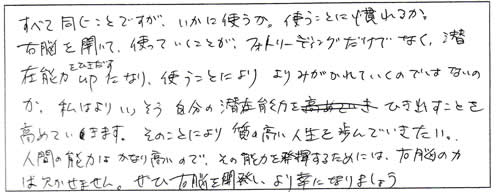 すべて同じことですが、いかに使うか。使うことに慣れるか。
右脳を開いて、使っていくことが、フォトリーディングだけでなく、潜
在能力をひきだすupになり、使うことにより よりみがかれていくのではないの
か。私はよりいっそう自分の潜在能力を高めていき ひき出すことを
高めていきます。そのことにより質の高い人生を歩んでいきたい。
人間の能力はかなり高いので、その能力を発揮するためには、右脳の力
は欠かせません。ぜひ右脳を開発し、より幸になりましょう